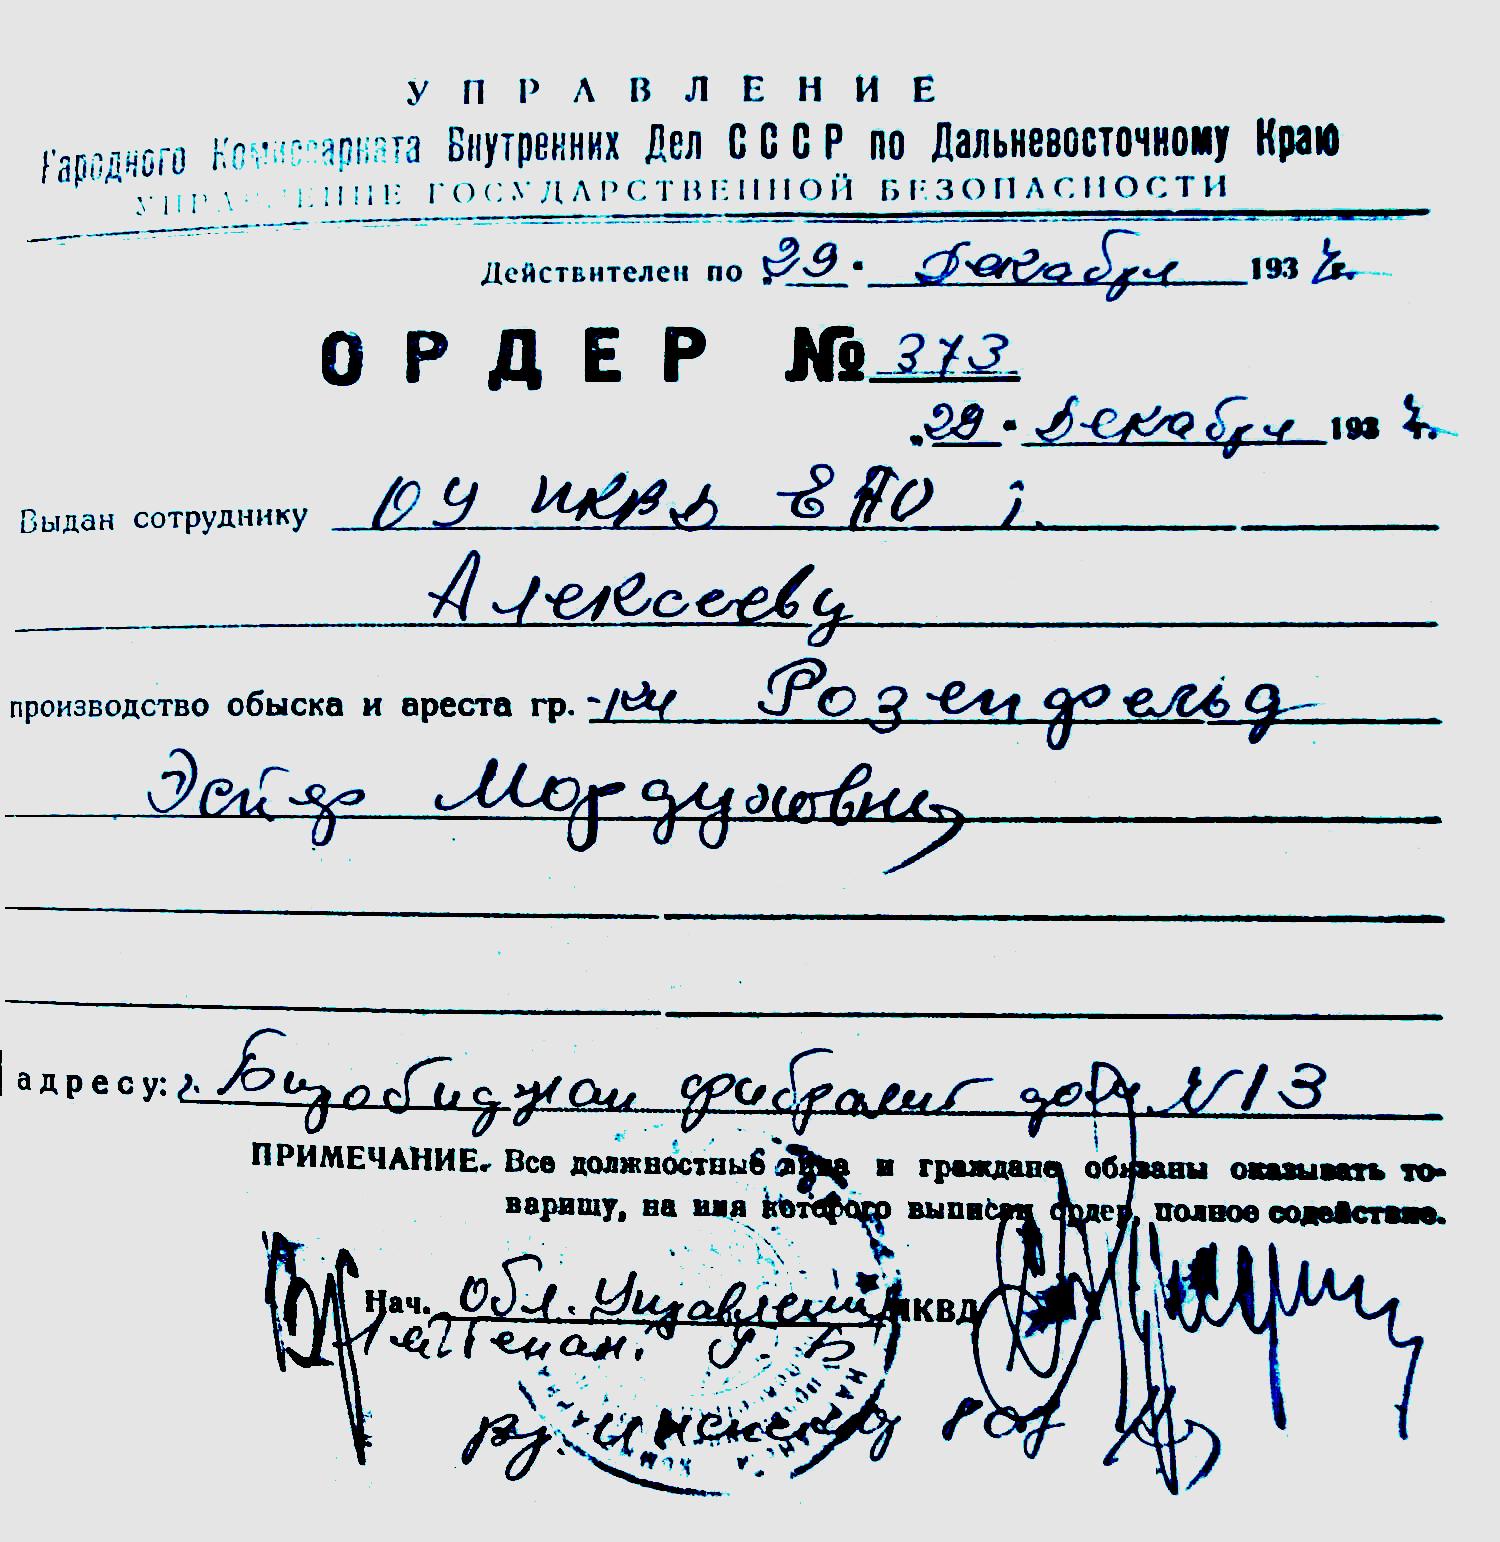 УПРАВЛЕНИЕ
Народного Комиссариата Внутренних Дел СССР по Дальневосточному Краю
УПРАВЛЕНИЕ ГОСУДАРСТВЕННОЙ БЕЗОПАСНОСТИ
Действителен по „29" Декабря 1937 г.
ОРДЕР № 373
„29" Декабря 1937 г.
Выдан сотруднику ОУ НКВД ЕАО
Алексееву
производство обыска и ареста гр.-ки Розенфельд
Эсфир Мордуховны
адресу: г. Биробиджан фибролит дом N 13
ПРИМЕЧАНИЕ. Все должностные лица и граждане обязаны оказывать то-
варищу, на имя которого выписан ордер, полное содействие.
Нач. Обл. Управления НКВД
Лейтенан. Г. Б